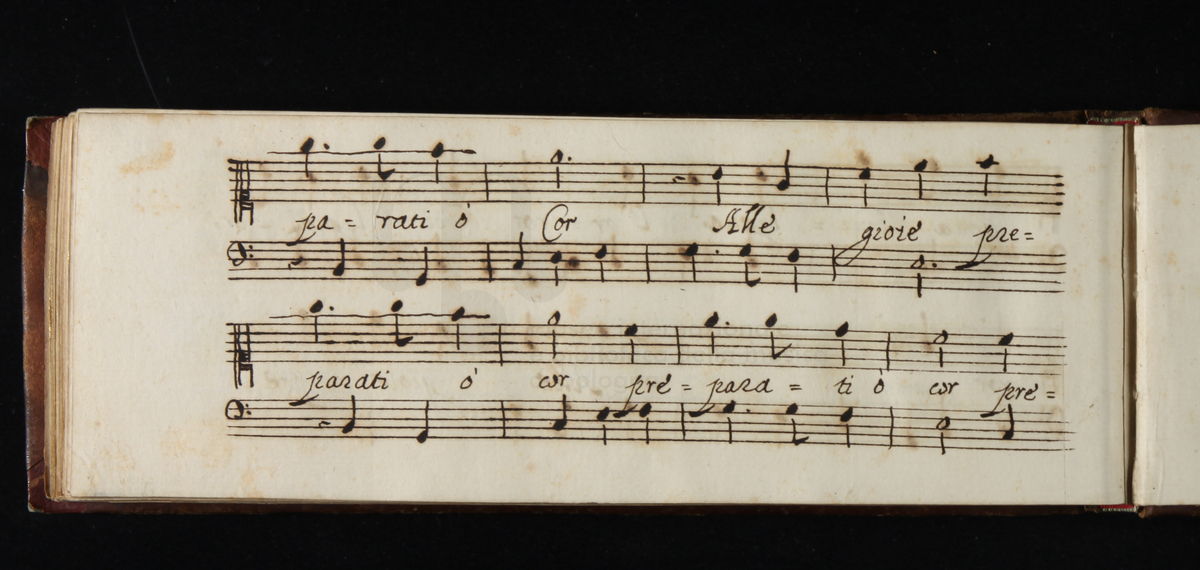 pa= rati ó Cor Alle gioie pre=
parati ó cor pre= para= ti ó cor pre=